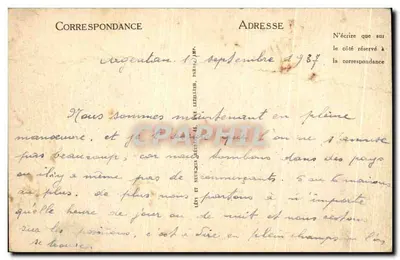 CORRESPONDANCE
ADRESSE
N'écrire que sur
le côté réservé à
la correspondance
Argentan 1 septembre 1937
Nous sommes maintenant en pleine
manœuvre, et je qu'on ne s'amuse
pas beaucoup, car nous tombons dans des pays
où il n'y a même pas de commerçants. 5 ou 6 maisons
au plus. de plus nous partons à n'importe
qu'elle heure de jour ou de nuit et nous restons
sur les positions, c'est à dire en plein champs ou l'on
se trouve.
CPAPHIL